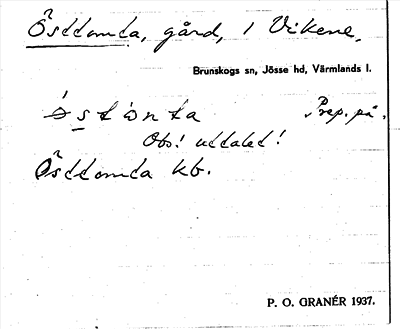 Östtomta, gård, i Vikene,
Brunskogs sn, Jösse hd, Värmlands l.
östȯnta Prep. på.
Obs! uttalet!
Östtomta kb.
P. O. GRANÉR 1937.